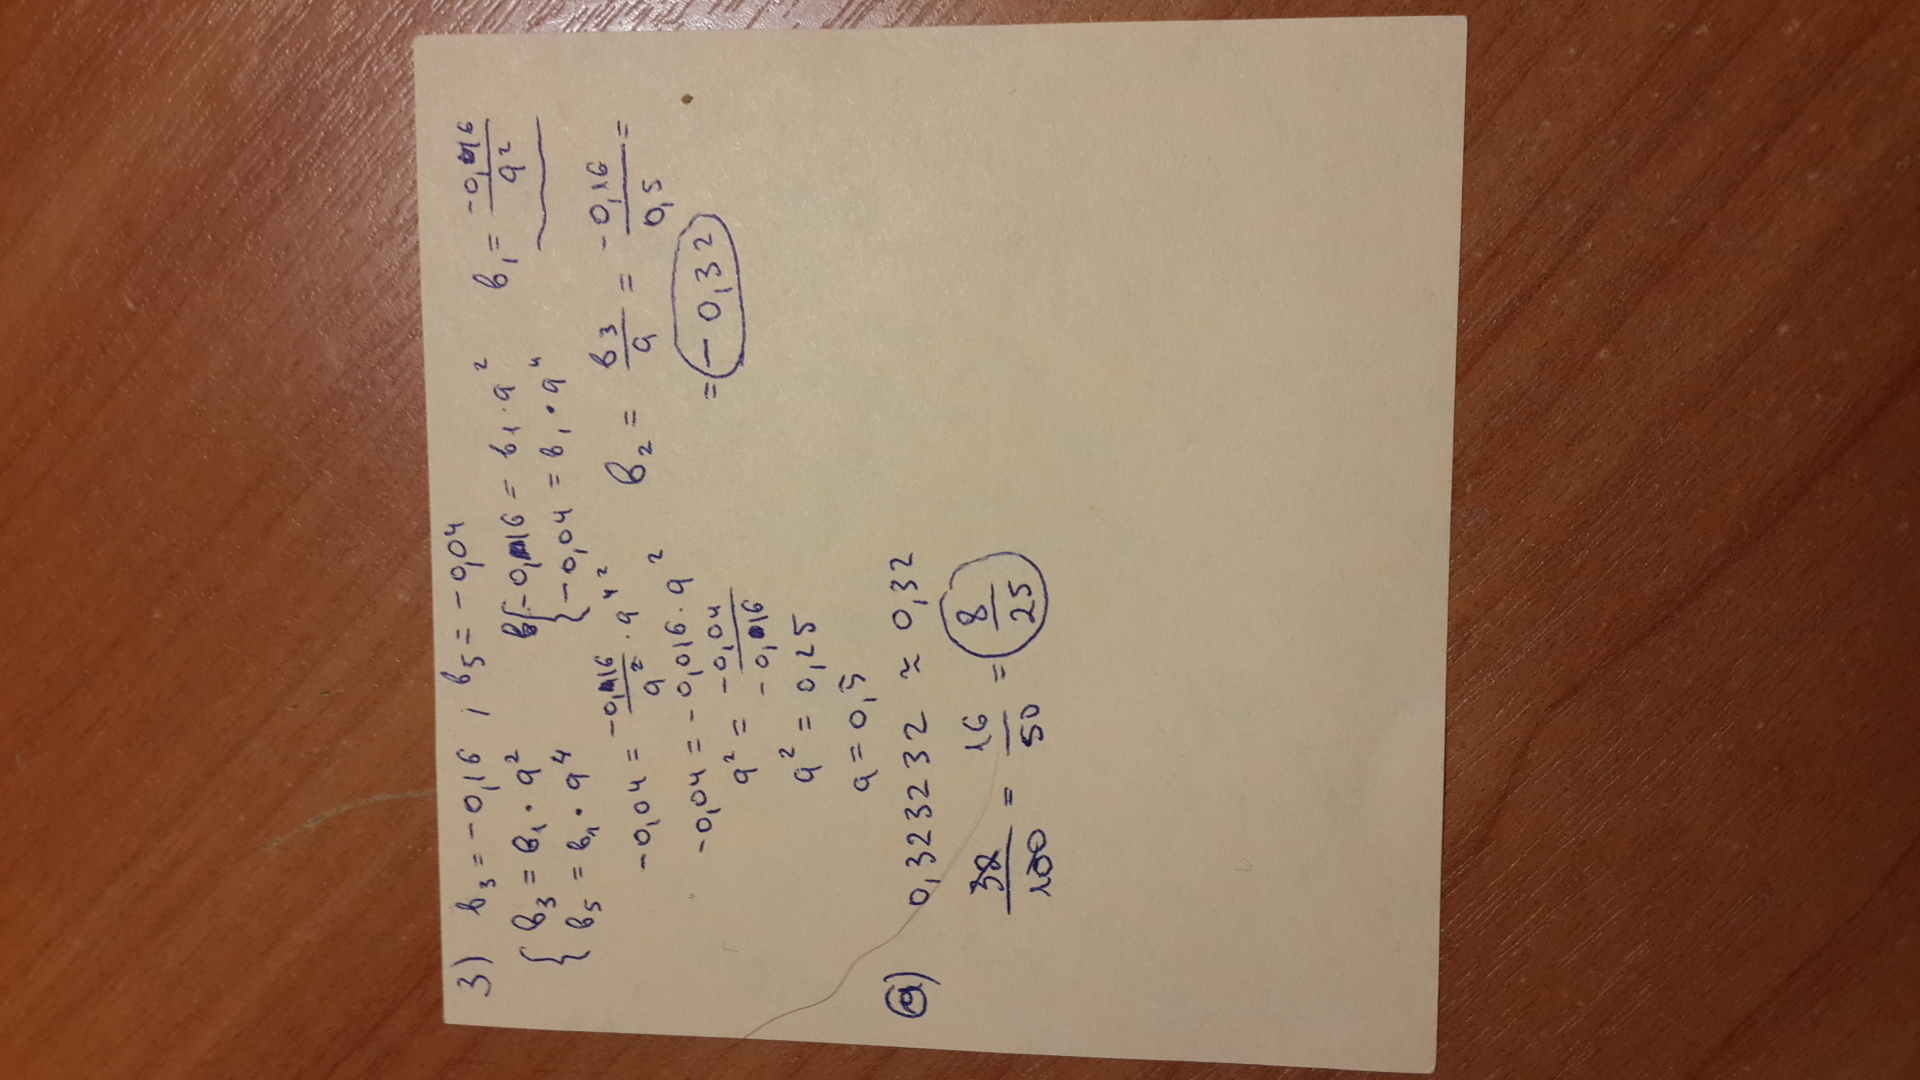 3) b₃ = -0,16 ; b₅ = -0,04
{ b₃ = b₁ · q²
b₅ = b₁ · q⁴
{ -0,16 = b₁ · q²
-0,04 = b₁ · q⁴
b₁ = -0,16/q²
-0,04 = -0,16/q² · q⁴ ²
-0,04 = -0,016 · q²
q² = -0,04/-0,16
q² = 0,25
q = 0,5
b₂ = b₃/q = -0,16/0,5 =
= -0,32
a) 0,323232 ≈ 0,32
32/100 = 16/50 = 8/25